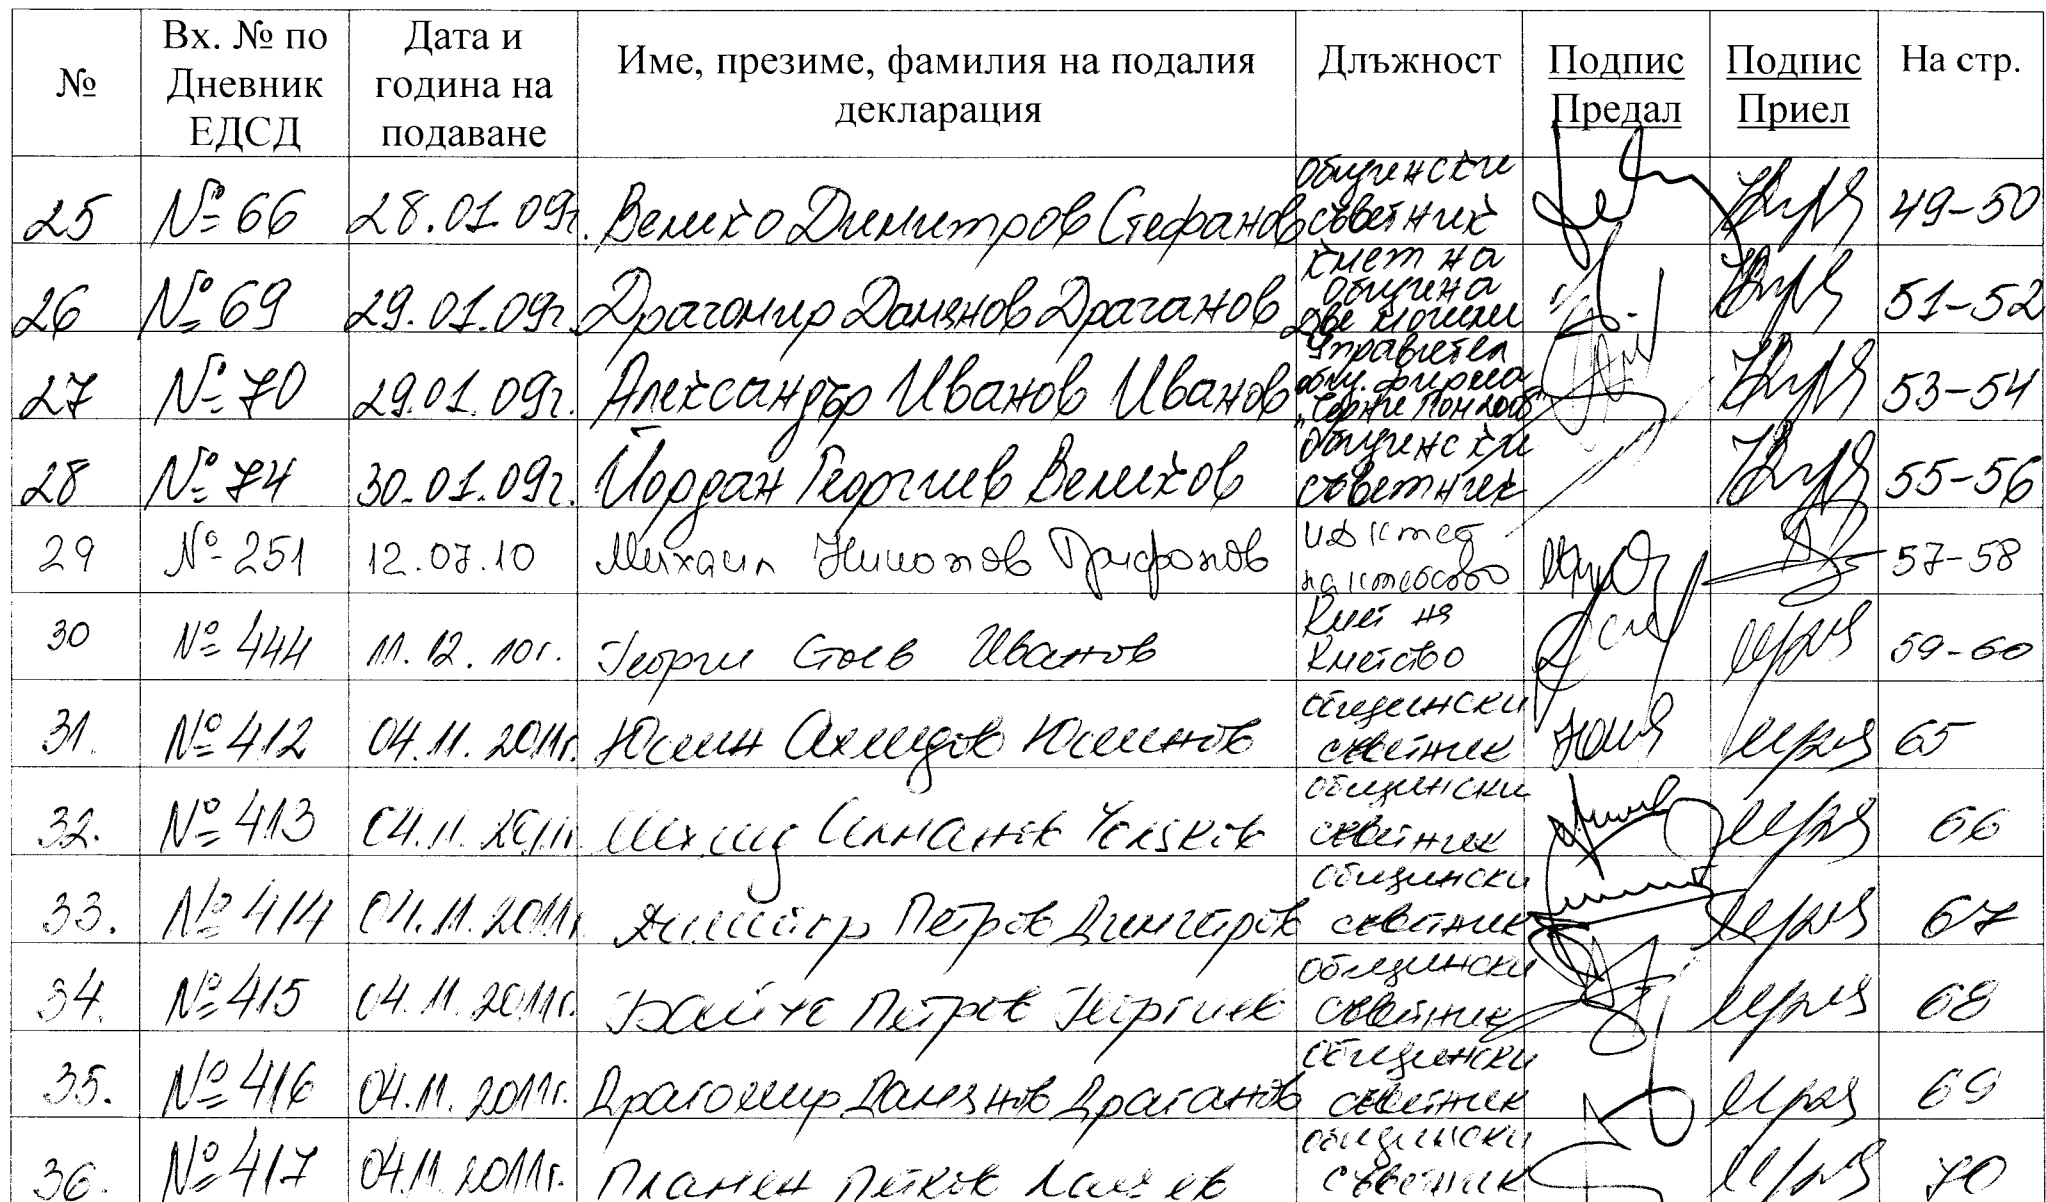 № Вх. № по Дата и Име, презиме, фамилия на подалия Длъжност Подпис Подпис На стр.
Дневник година на декларация Предал Приел
ЕДСД подаване
25 № 66 28.01.09г. Велико Димитров Стефанов общински съветник 49-50
26 № 69 29.01.09г. Драгомир Дамянов Драганов кмет на община Две могили 51-52
27 № 70 29.01.09г. Александър Иванов Иванов Управител общ. фирма 53-54
28 № 74 30.01.09г. Йордан Георгиев Великов общински съветник 55-56
29 № 251 12.07.10 Михаил Трифонов ИД кмет на кметство 57-58
30 № 444 11.12.10г. Георги Стоев Иванов Кмет на Кметство 59-60
31. № 412 04.11.2011г. Юсеин Ахмедов Юсеинов общински съветник 65
32. № 413 04.11.2011г. общински съветник 66
33. № 414 04.11.2011г. Димитър Петров Димитров общински съветник 67
34. № 415 04.11.2011г. Петров Георгиев общински съветник 68
35. № 416 04.11.2011г. Драгомир Дамянов Драганов общински съветник 69
36. № 417 04.11.2011г. Пламен Петков общински съветник 70